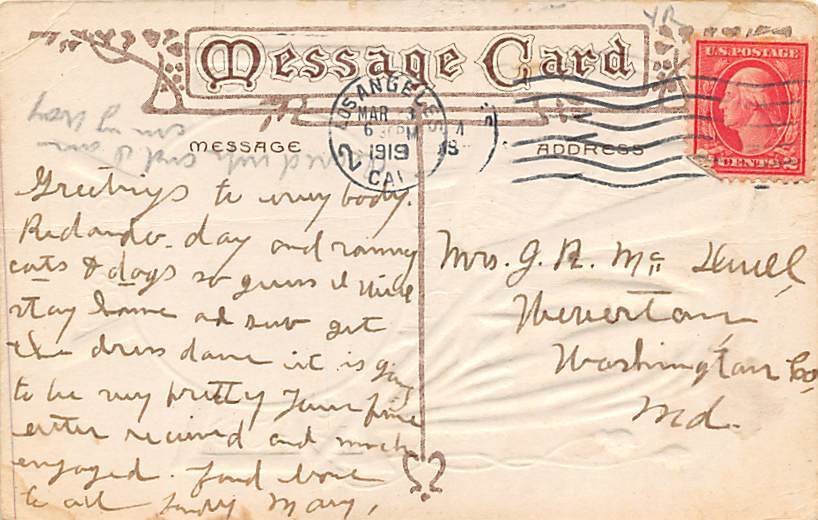 Message Card
U.S. POSTAGE
2 CENTS 2
LOS ANGELES
MAR 3
6 30 PM
1919
CAL
2
MESSAGE
ADDRESS
Greetings to every body.
Redondo day and rainy
cats & dogs so guess I will
stay home and get
the dress done it is going
to be very pretty Your fine
letter received and much
enjoyed. fond love
to all Mary,
Mrs. J. R. Mc
Weverton
Washington Co,
Md.